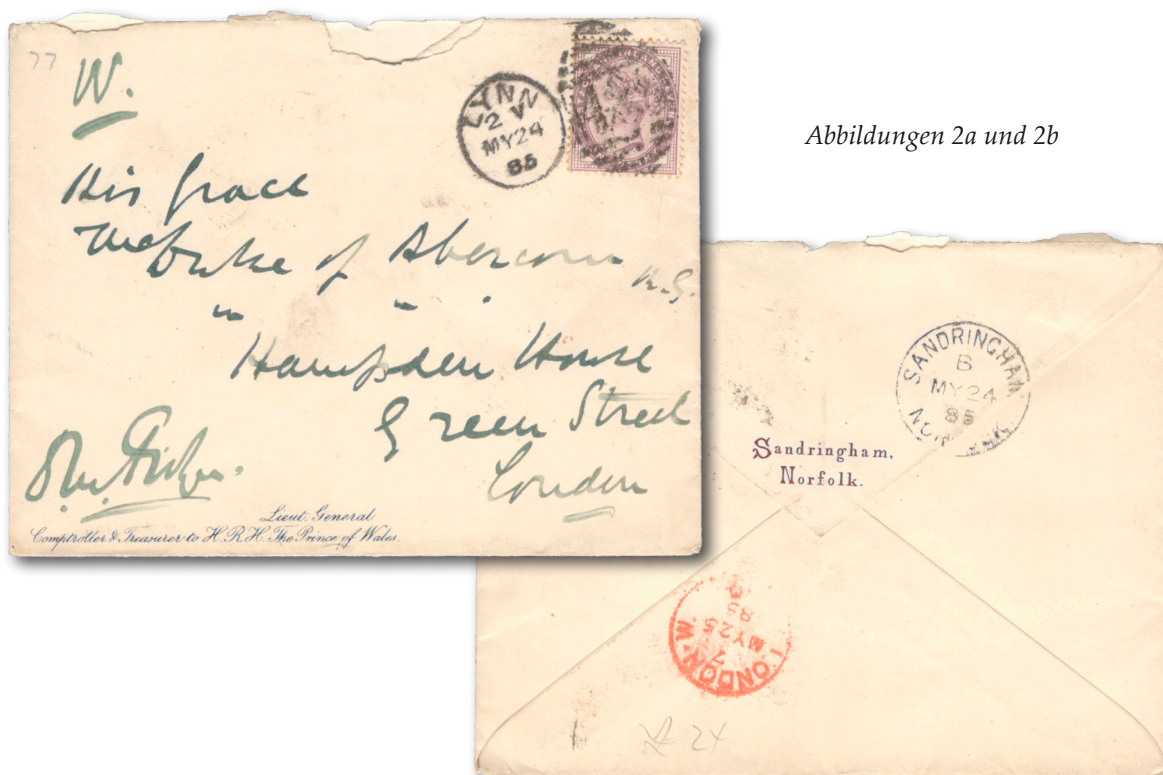 77
W.
LYNN
2 V
MY24
85
Abbildungen 2a und 2b
His Grace
The Duke of Abercorn K.G.
" "
Hampden House
Green Street
London
Lieut. General
Comptroller & Treasurer to H.R.H. The Prince of Wales.
SANDRINGHAM
B
MY24
85
NORFOLK
Sandringham,
Norfolk.
LONDON.W.
7
MY25
85
24